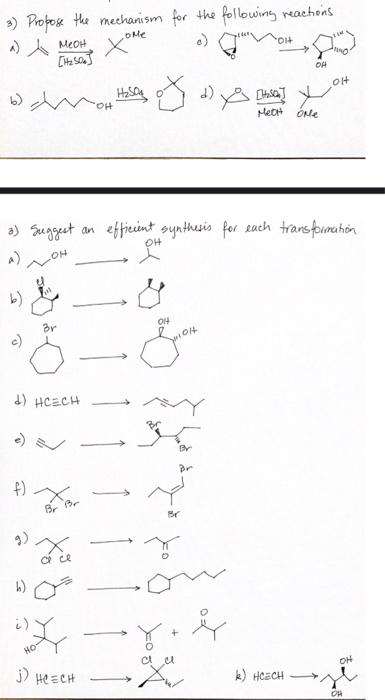 3) Propose the mechanism for the following reactions
a) MeOH [H2SO4] OMe
c) OH O OH O
b) OH H2SO4 O
d) O [H2SO4] MeOH OH OMe
3) Suggest an efficient synthesis for each transformation
a) OH OH
b) Cl
c) Br OH OH
d) HC≡CH
e) Br Br
f) Br Br Br Br
g) Cl Cl O
h)
i) HO O + O
j) HC≡CH Cl Cl
k) HC≡CH OH OH